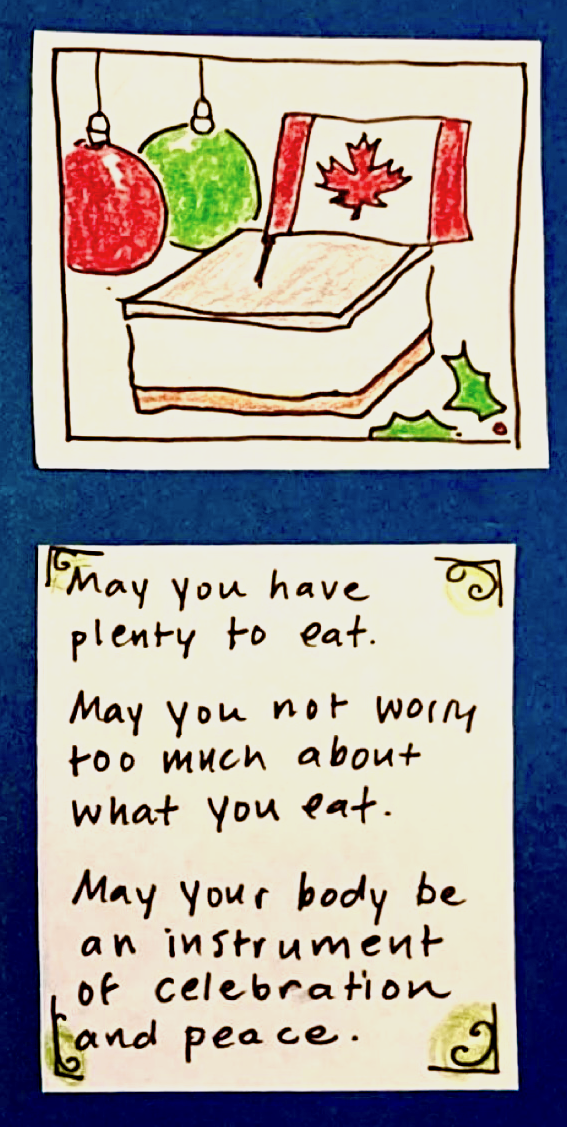 May you have
plenty to eat.
May you not worry
too much about
what you eat.
May your body be
an instrument
of celebration
and peace.